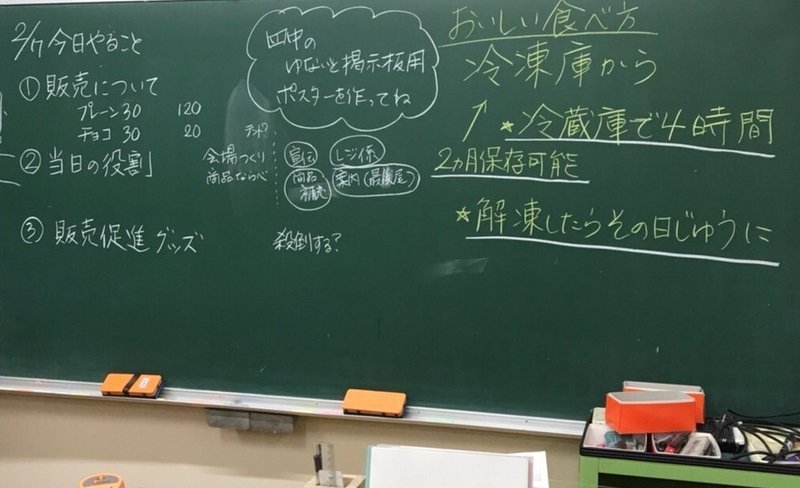 2/7 今日やること
① 販売について
プレーン 30 120
チョコ 30 20
② 当日の役割
会場づくり
商品ならべ
テント?
宣伝
レジ係
商品補充
案内(最後尾)
③ 販売促進グッズ
殺倒する?
四中の
ゆないと掲示板用
ポスターを作ってね
おいしい食べ方
冷凍庫から
↗ ★冷蔵庫で4時間
2ヵ月保存可能
★解凍したらその日じゅうに